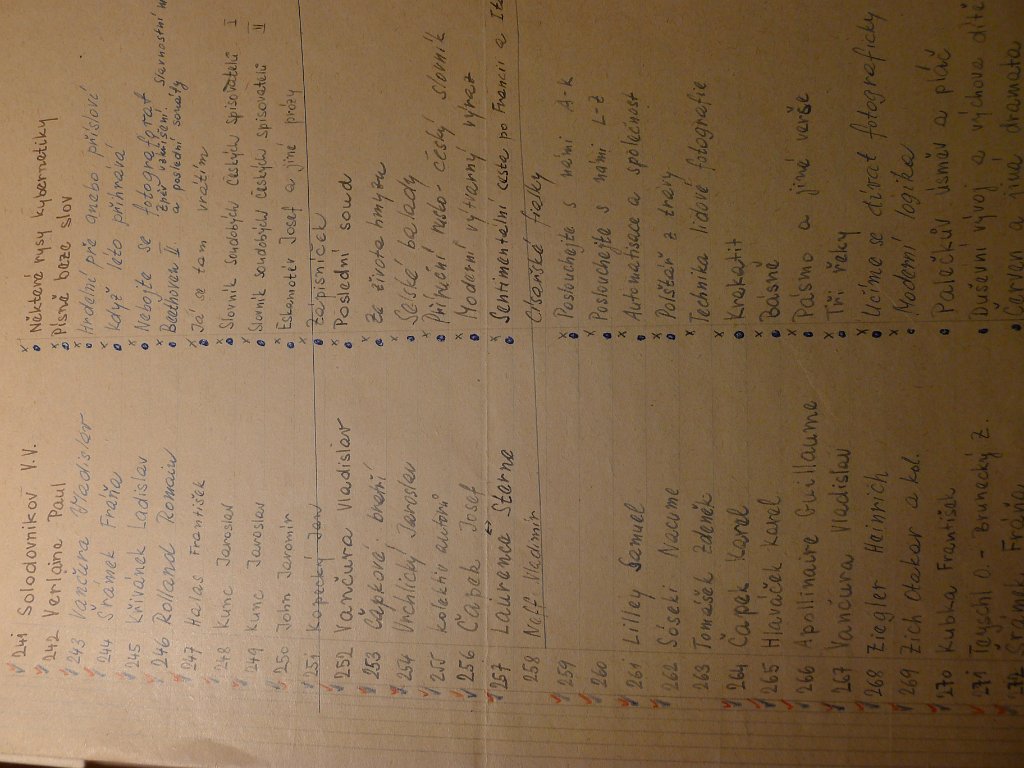 241 Solodovnikov V.V. x Některé rysy kybernetiky
242 Verlaine Paul x Písně beze slov
243 Vančura Vladislav x Hrdelní pře anebo přísloví
244 Šrámek Fráňa x Když léto přihrává
245 Křivánek Ladislav x Nebojte se fotografovat
246 Rolland Romain x Beethoven II. Zpěv vzkříšení slavnostní
a poslední sonáty
247 Halas František x Já se tam vrátím
248 Kunc Jaroslav x Slovník soudobých českých spisovatelů I
249 Kunc Jaroslav x Slovník soudobých českých spisovatelů II
250 John Jaromír x Eskamotér Josef a jiné prózy
251 Kopecký Jan x Zápisníček
252 Vančura Vladislav x Poslední soud
253 Čapkové bratří x Ze života hmyzu
254 Vrchlický Jaroslav x Selské balady
255 Kolektiv autorů x Příruční rusko-český slovník
256 Čapek Josef x Moderní výtvarný výraz
257 Laurence Sterne x Sentimentální cesta po Francii a
258 Neff Vladimír fialky
259 x Poslouchejte s námi A-K
260 x Poslouchejte s námi L-Z
261 Lilley Samuel x Automatisace a společnost
262 Sóseki Nacume x Polštář z trávy
263 Tomášek Zdeněk x Technika lidové fotografie
264 Čapek Karel x Krakatit
265 Hlaváček Karel x Básně
266 Apollinaire Guillaume x Pásmo a jiné verše
267 Vančura Vladislav x Tři řeky
268 Ziegler Heinrich x Učíme se dívat fotograficky
269 Zich Otakar a kol. x Moderní logika
270 Kubka František x Palečkův úsměv a pláč
271 Teyschl O. - Brunecký Z. x Duševní vývoj a výchova dítě
272 Šrámek Fráňa Červen a jiná dramata